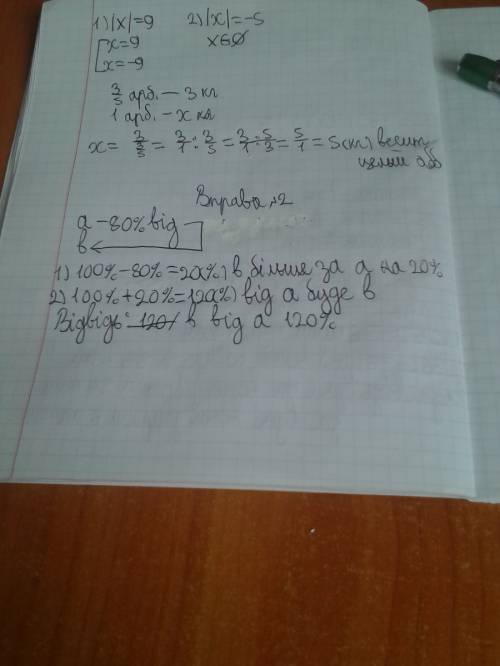 1) |x|=9 2) |x|=-5
[x=9 x∈∅
[x=-9
3/5 арб. — 3 кг
1 арб. — x кг
x = 3/(3/5) = 3/1 : 3/5 = 3/1 · 5/3 = 5/1 = 5(кг) весить
целий
Вправа №2
a - 80% від
в
1) 100% - 80% = 20(%) в більше за a на 20%
2) 100% + 20% = 120(%) від a буде в
Відвідь: 120% в від a 120%